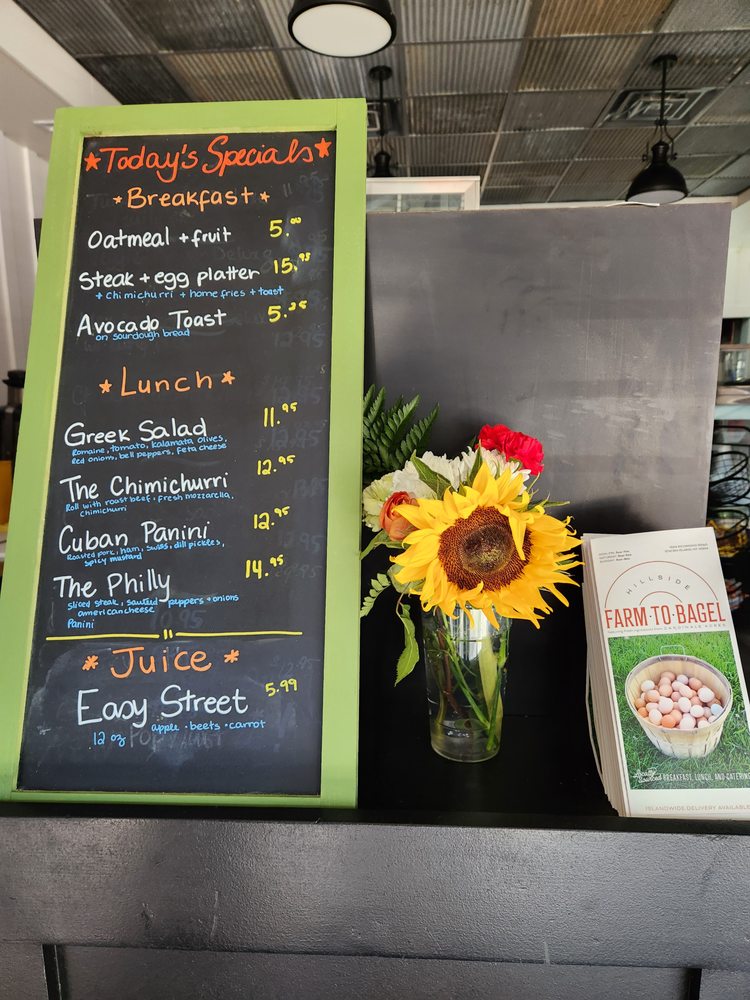 ★Today's Specials★
★Breakfast★
Oatmeal + fruit 5.00
Steak + egg platter 15.95
+ chimichurri + home fries + toast
Avocado Toast
on sourdough bread
★Lunch★
Greek Salad 11.95
Romaine, tomato, kalamata olives,
Red onions, bell peppers, feta cheese
The Chimichurri 12.95
Roll with roast beef, fresh mozzarella,
chimichurri
Cuban Panini 12.95
Roasted pork, ham, swiss, dill pickles,
spicy mustard
The Philly 14.95
sliced steak, sauteed peppers + onions
american cheese
Panini
★Juice★
Easy Street 5.99
12 oz apple • beets • carrot
HILLSIDE
FARM·TO·BAGEL
BREAKFAST, LUNCH, AND CATERING
ISLANDWIDE DELIVERY AVAILABLE